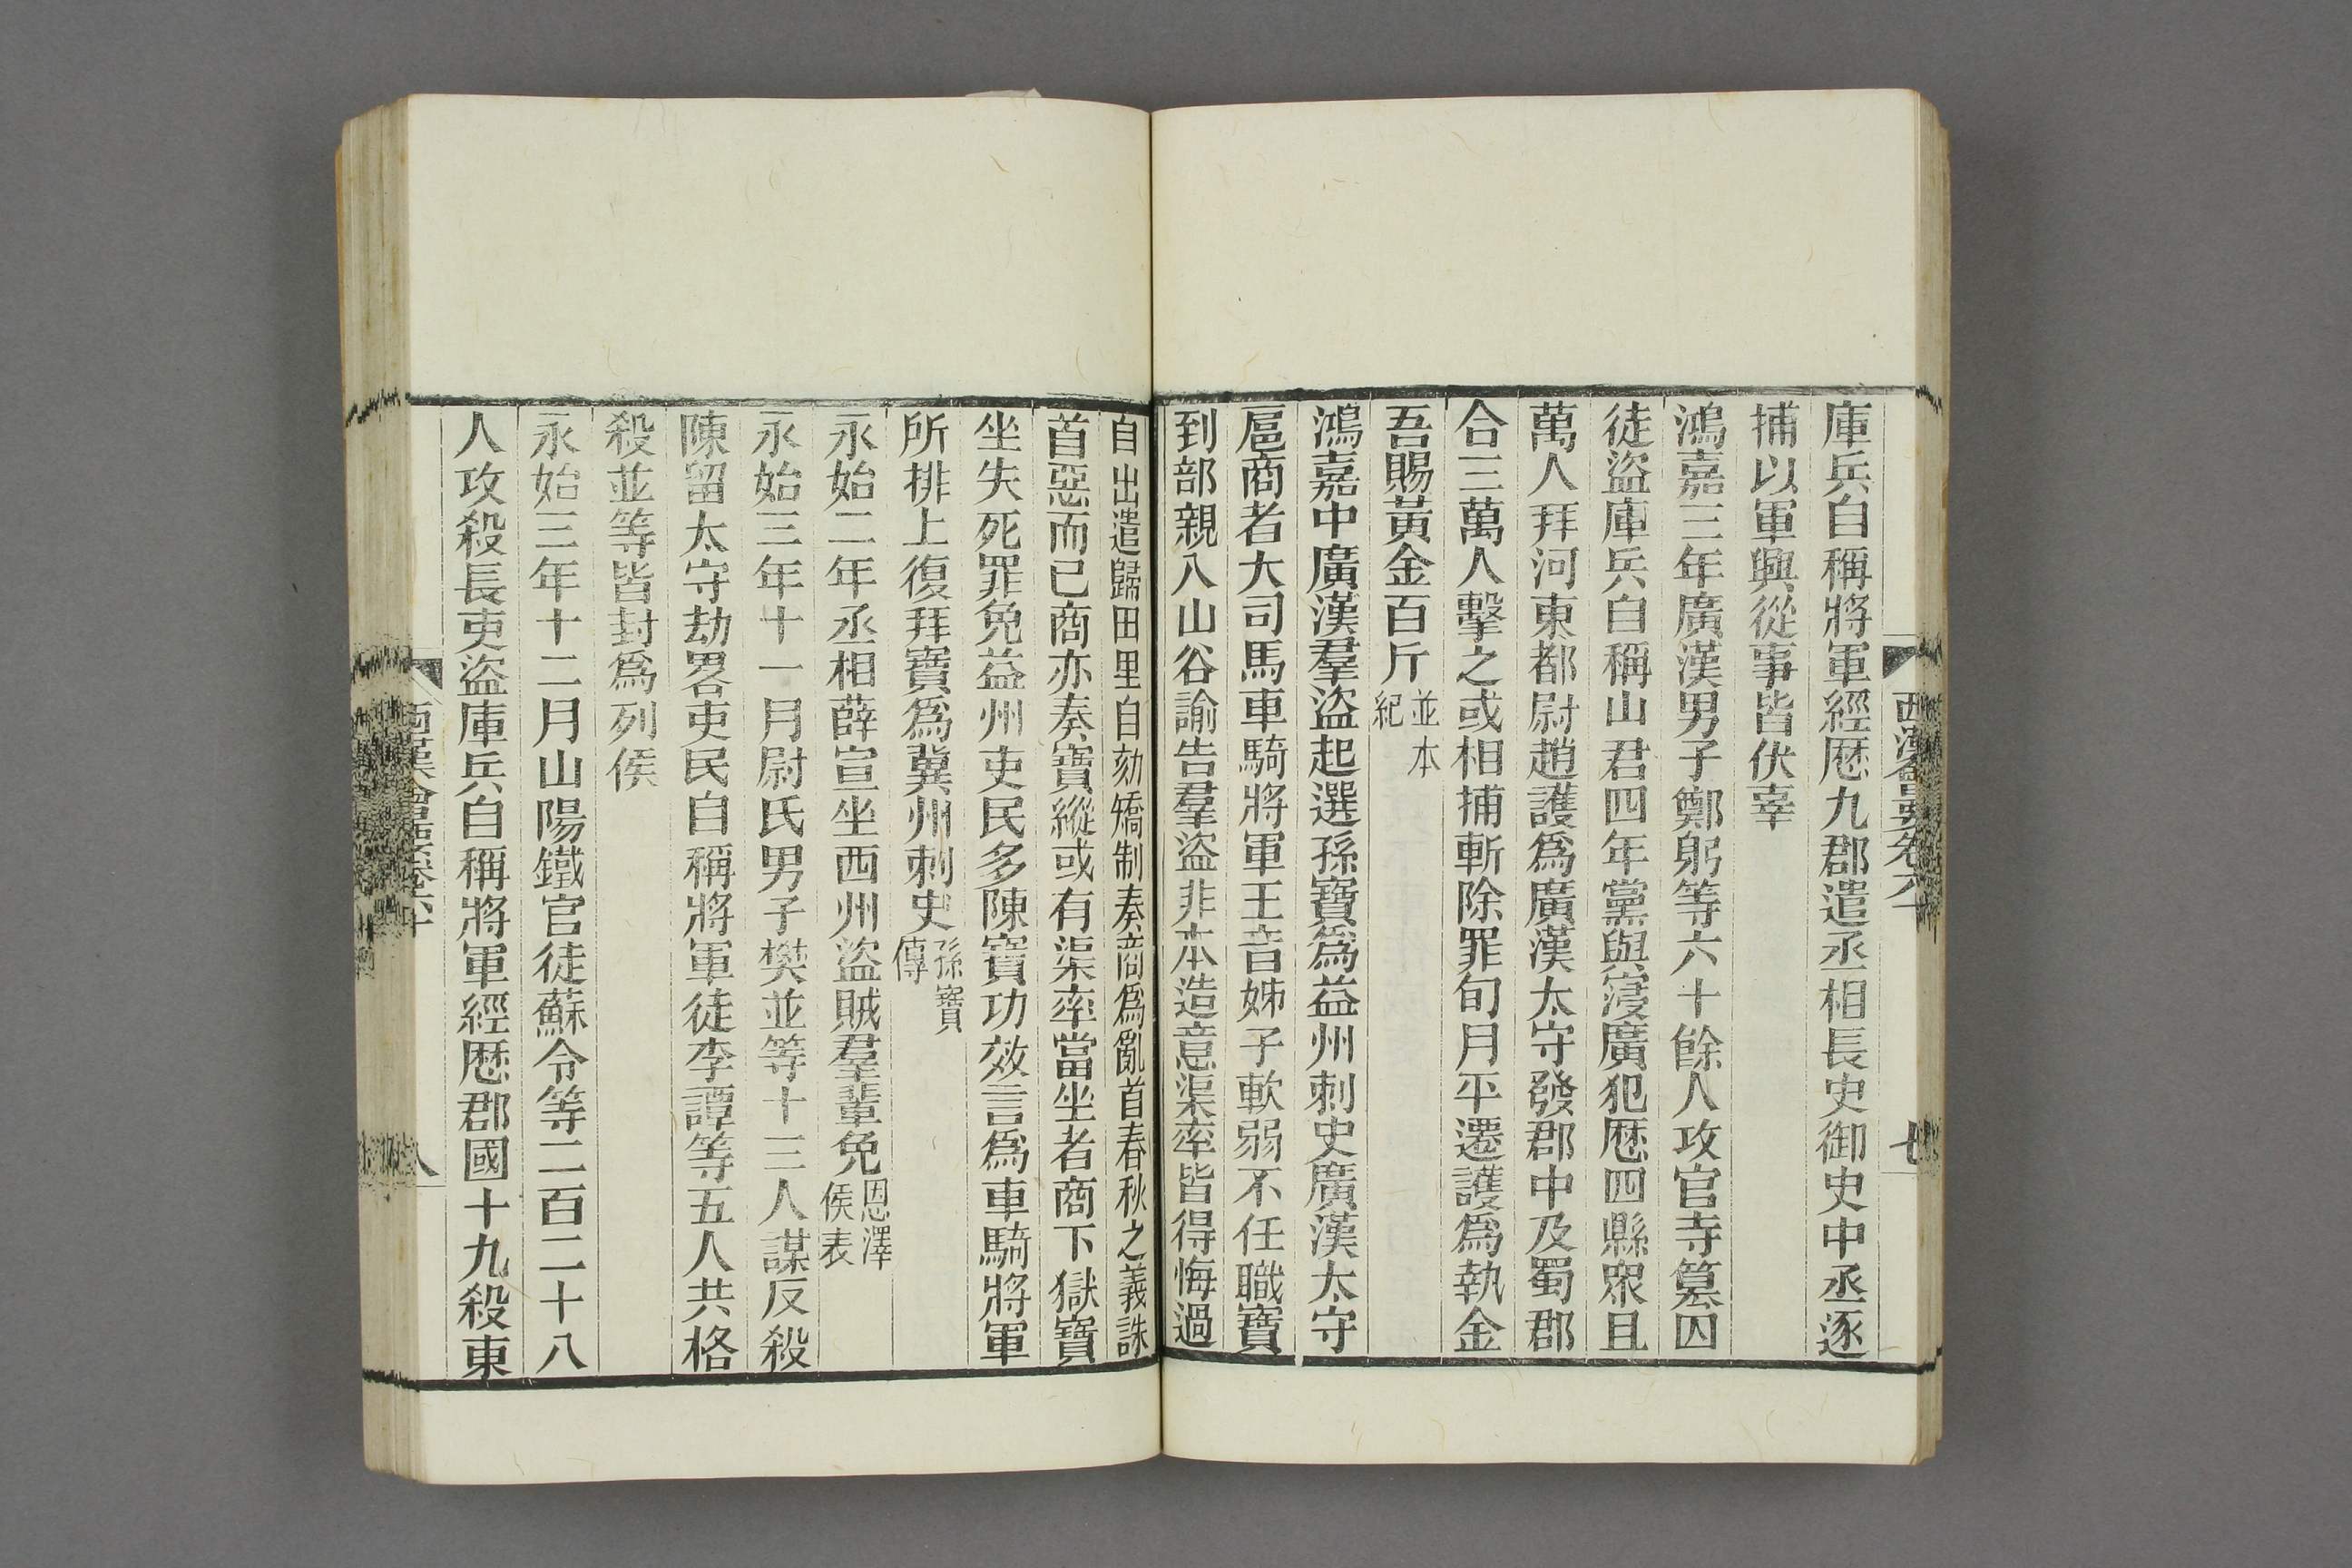 庫兵自稱將軍經厯九郡遣丞相長史御史中丞逐
捕以軍興從事皆伏辜
鴻嘉三年廣漢男子鄭躬等六十餘人攻官寺篡囚
徒盜庫兵自稱山君四年黨與寖廣犯厯四縣眾且
萬人拜河東都尉趙護爲廣漢太守發郡中及蜀郡
合三萬人擊之或相捕斬除罪旬月平遷護爲執金
吾賜黃金百斤並本
紀
鴻嘉中廣漢羣盜起選孫寶爲益州刺史廣漢太守
扈商者大司馬車騎將軍王音姊子軟弱不任職寶
到部親入山谷諭告羣盜非本造意渠率皆得悔過
自出遣歸田里自劾矯制奏商爲亂首春秋之義誅
首惡而已商亦奏寶縱或有渠率當坐者商下獄寶
坐失死罪免益州吏民多陳寶功效言爲車騎將軍
所排上復拜寶爲冀州刺史孫寶
傳
永始二年丞相薛宣坐西州盜賊羣輩免恩澤
侯表
永始三年十一月尉氏男子樊並等十三人謀反殺
陳留太守劫畧吏民自稱將軍徒李譚等五人共格
殺並等皆封爲列侯
永始三年十二月山陽鐵官徒蘇令等二百二十八
人攻殺長吏盜庫兵自稱將軍經厯郡國十九殺東
西漢會要卷六十
七
西漢會要卷六十
八